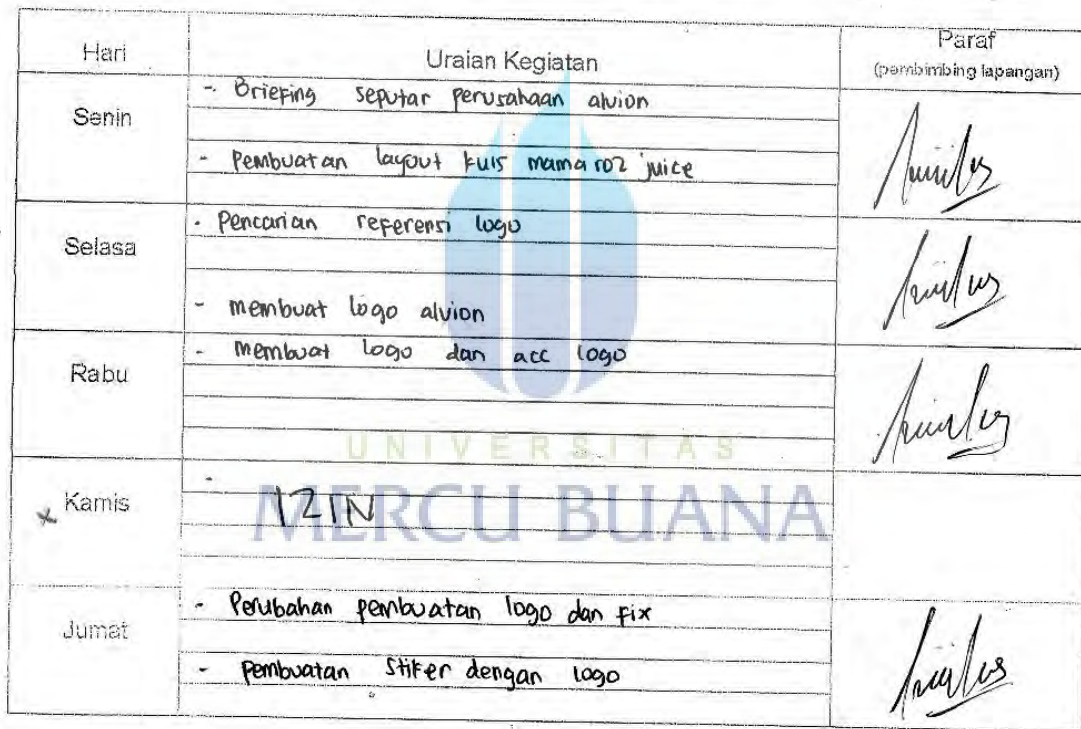 Hari Uraian Kegiatan Paraf
(pembimbing lapangan)
Senin
- Briefing seputar perusahaan alvion
- Pembuatan layout kuis mama roz juice
Selasa
- Pencarian referensi logo
- membuat logo alvion
Rabu
- membuat logo dan acc logo
UNIVERSITAS
MERCU BUANA
x Kamis
- IZIN
Jumat
- Perubahan pembuatan logo dan fix
- pembuatan stiker dengan logo